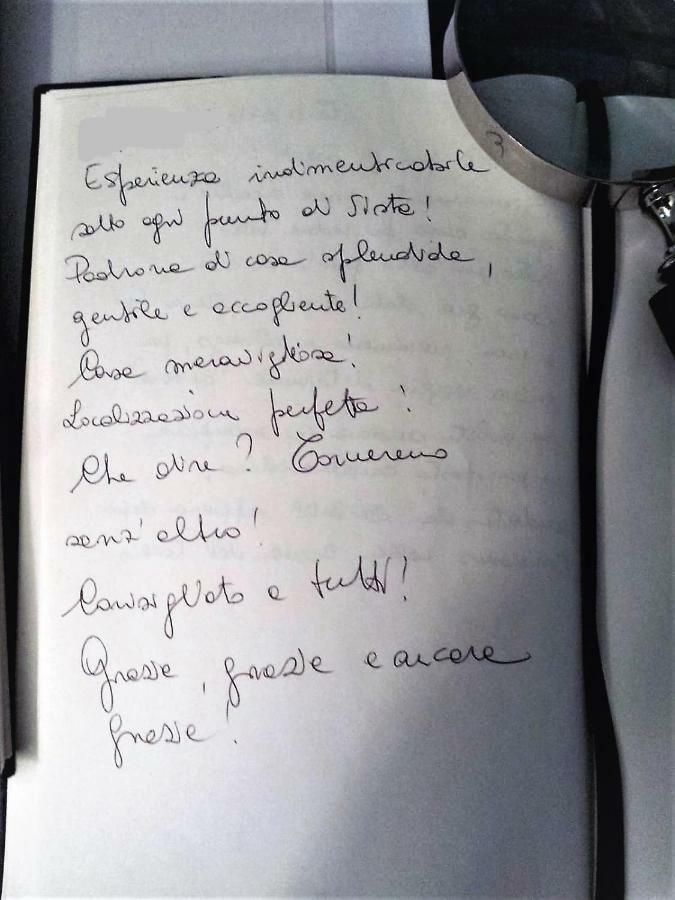 Esperienza indimenticabile
sotto ogni punto di vista!
Padrona di casa splendida,
gentile e accogliente!
Casa meravigliosa!
Localizzazione perfetta!
Che dire? Torneremo
senz'altro!
Consigliato a tutti!
Grazie, grazie e ancora
grazie!